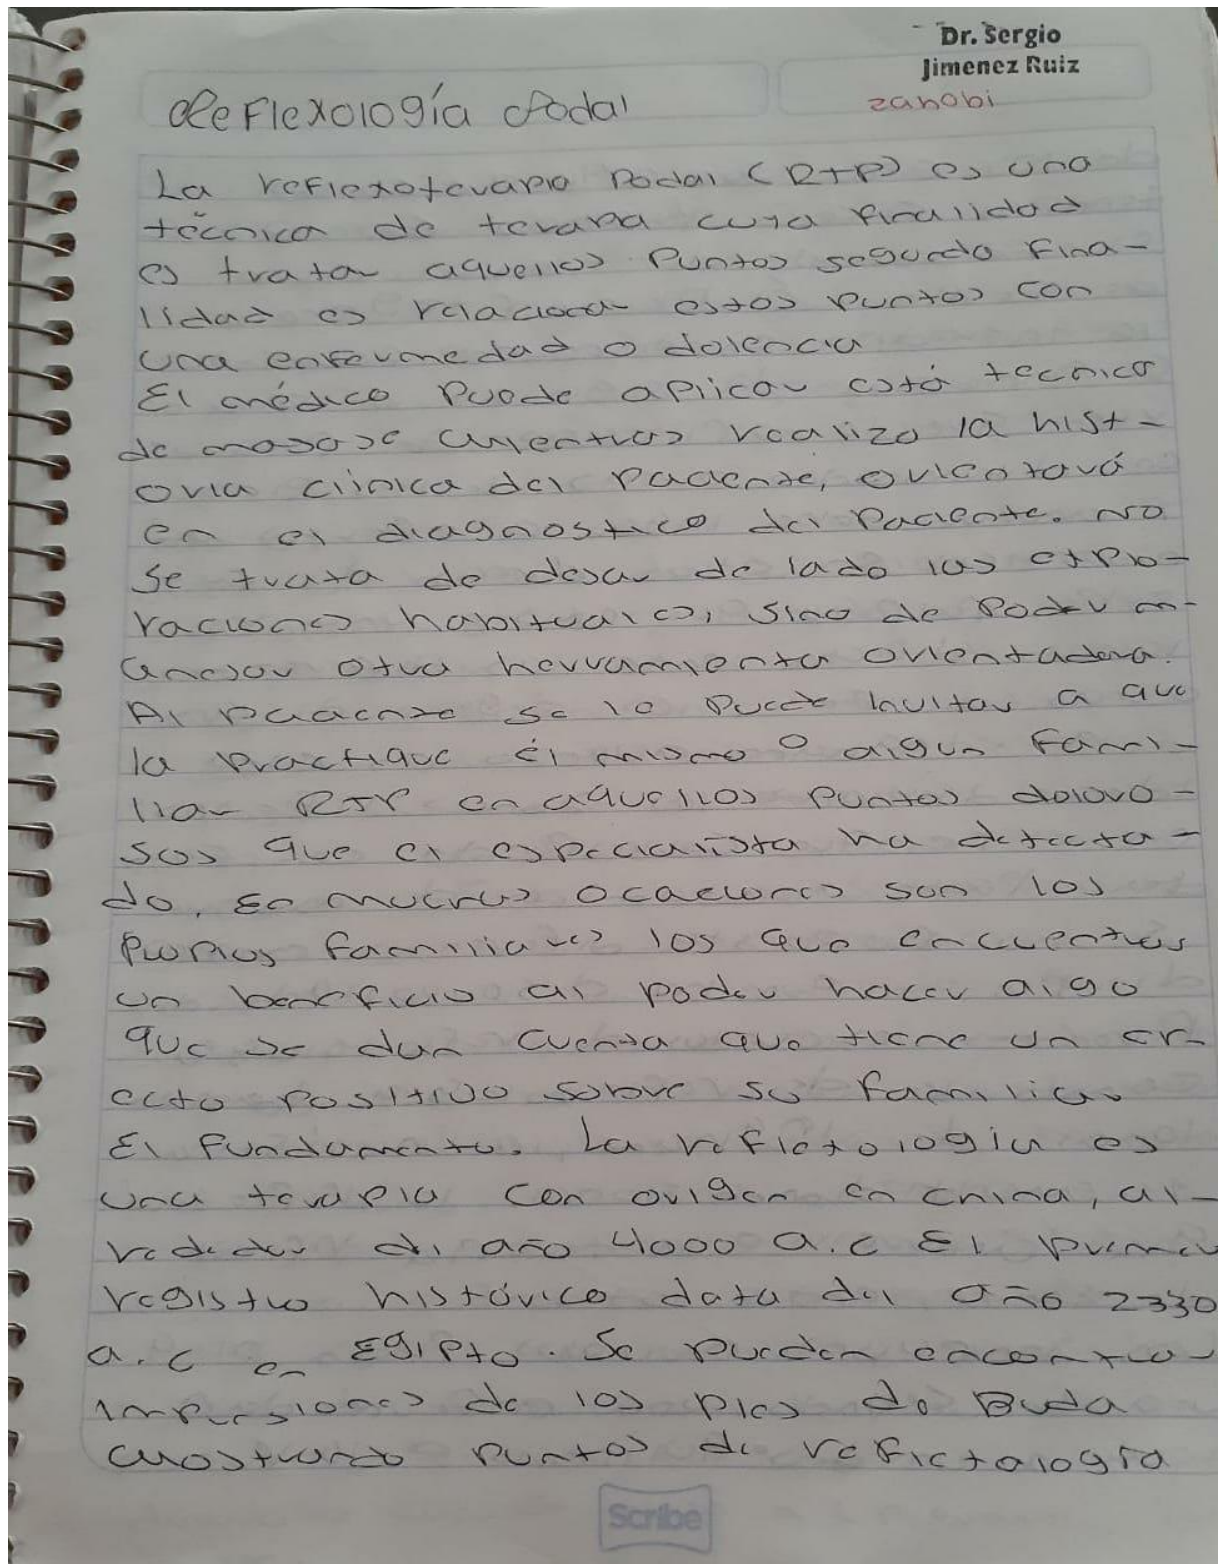 Dr. Sergio
Jimenez Ruiz
zanobi
Reflexología Podal
La reflexoterapia Podal (RTP) es una
técnica de terapia cuya finalidad
es tratar aquellos Puntos segunda Fina-
lidad es relacionar estos puntos con
una enfermedad o dolencia
El médico Puede aplicar está tecnica
de masaje mientras realiza la hist-
oria clínica del Paciente, orientará
en el diagnostico del Paciente. No
se trata de dejar de lado las explo-
raciones habituales, sino de Poder m-
anejar otra herramienta orientadora.
Al paciente se le puede invitar a que
la practique él mismo o algun Fami-
liar RTP en aquellos puntos doloro-
sos que el especialista ha detecta-
do. En muchas ocaciones son los
Propios familiares los que encuentras
un beneficio al poder hacer algo
que se dan cuenta que tiene un ef-
ecto positivo sobre su familiar
El Fundamento. La reflexología es
una terapia con origen en china, al-
rededor del año 4000 a.c El primer
registro histórico data del año 2330
a.c en Egipto. Se pueden encontrar
impresiones de los pies de Buda
mostrando puntos de reflexología
Scribe